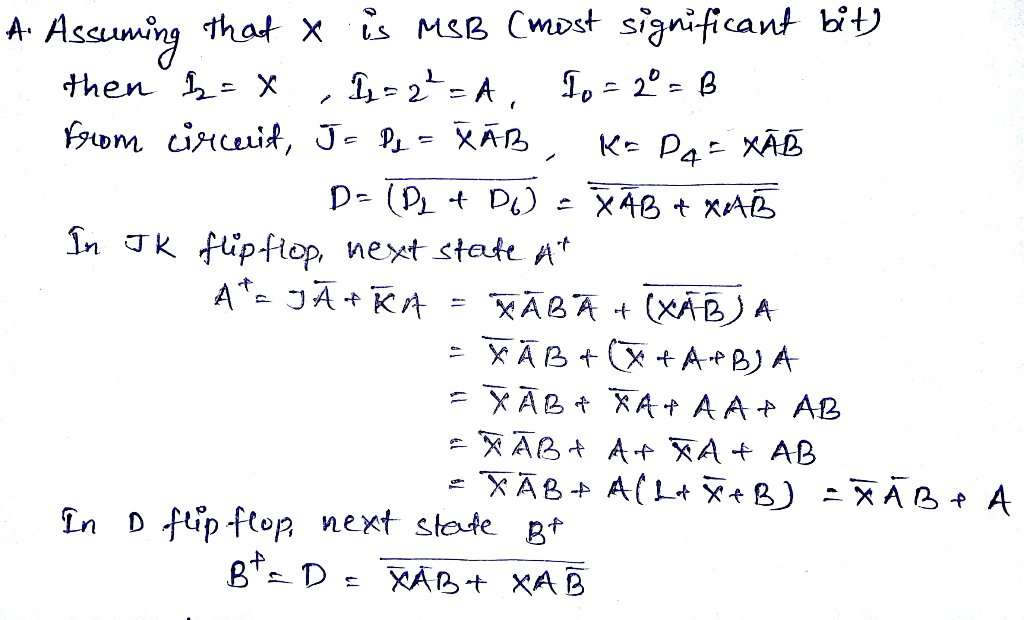 A. Assuming that X is MSB (most significant bit)
then I₂ = X , I₁ = 2¹ = A , I₀ = 2⁰ = B
From circuit, J = D₁ = X̅A̅B , K = D₄ = XA̅B̅
D = \overline{(D₁ + D₆)} = \overline{X̅A̅B + XAB̅}
In JK flipflop, next state A⁺
A⁺ = JA̅ + K̅A = X̅A̅BA̅ + \overline{(XA̅B̅)}A
= X̅A̅B + (X̅ + A + B)A
= X̅A̅B + X̅A + AA + AB
= X̅A̅B + A + X̅A + AB
= X̅A̅B + A(1 + X̅ + B) = X̅A̅B + A
In D flip flop, next state B⁺
B⁺ = D = \overline{X̅A̅B + XAB̅}